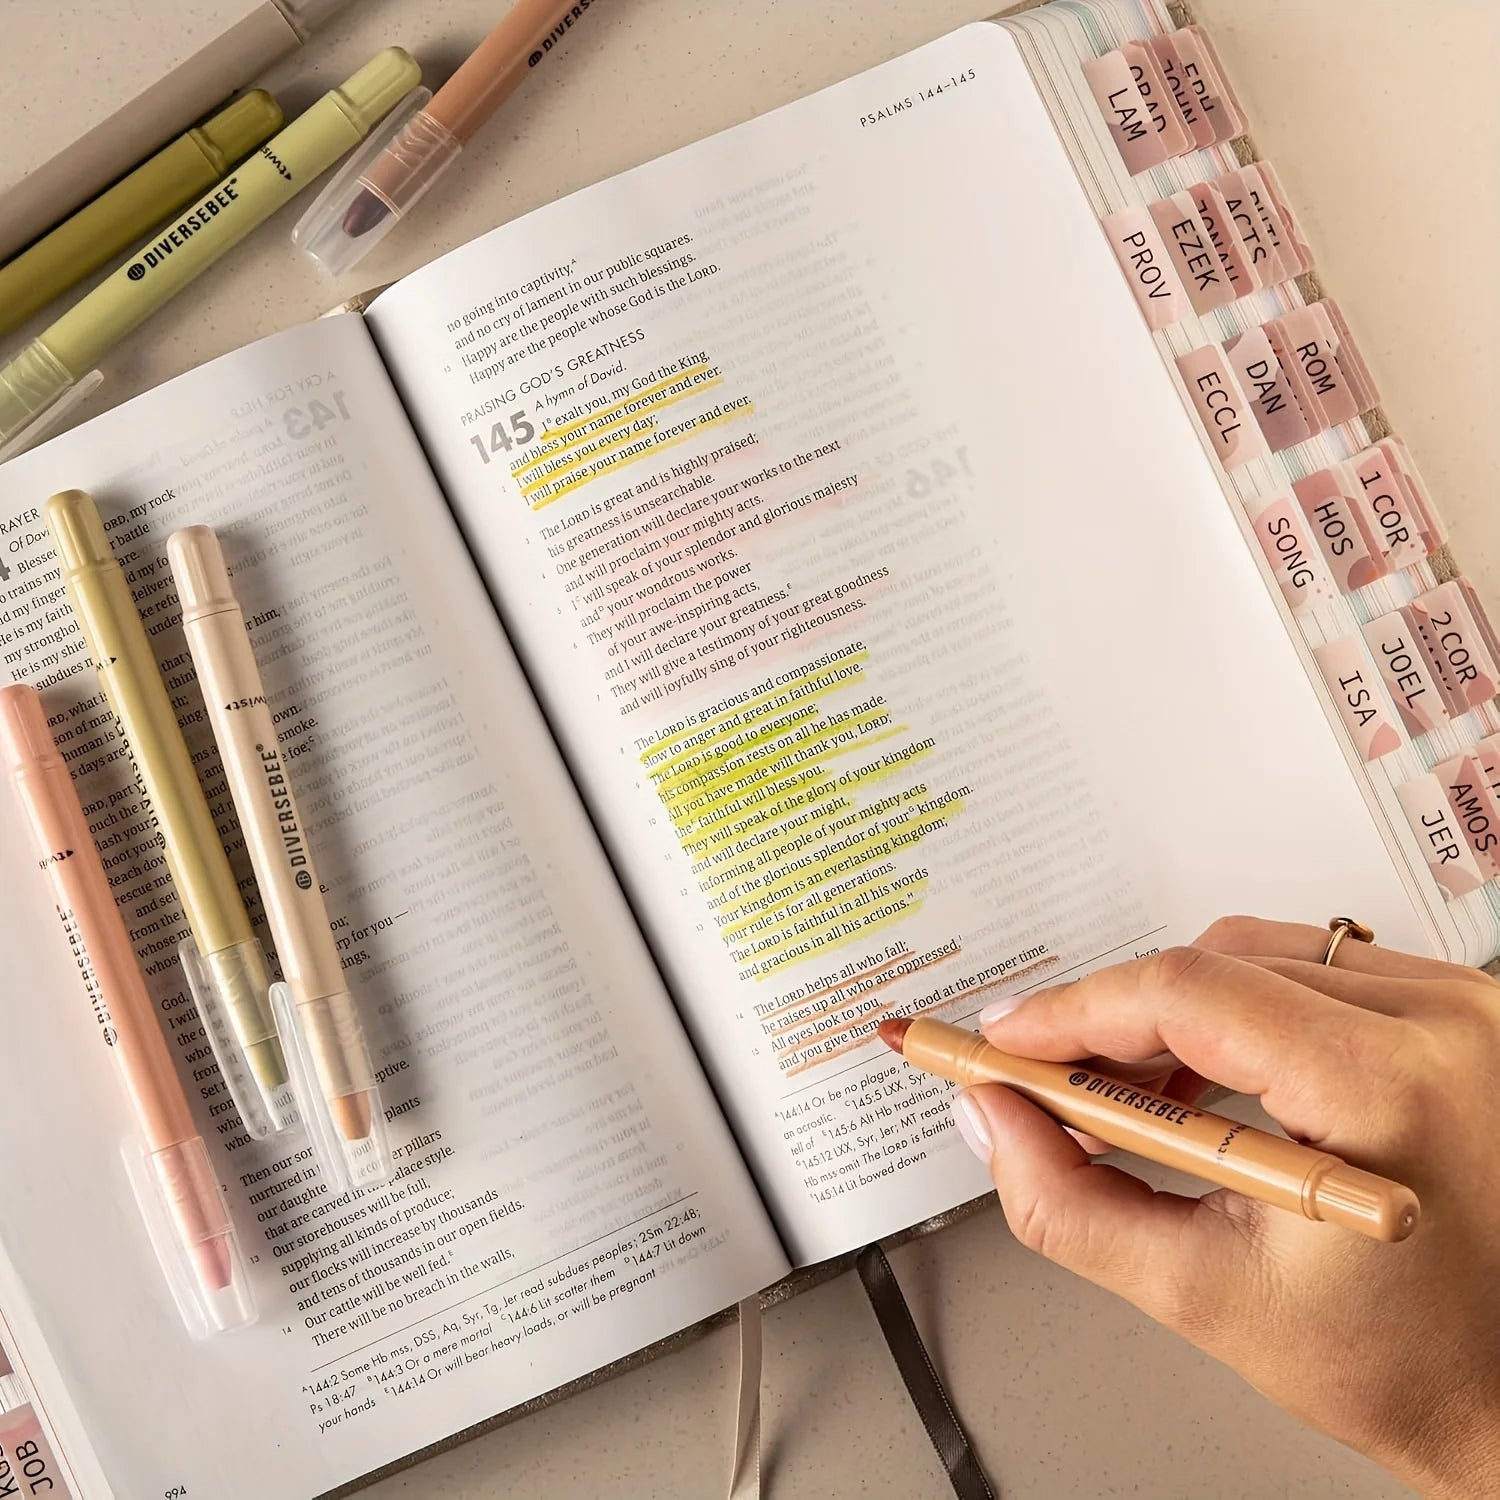 DIVERSEBEE
twist
DIVERSEBEE
PSALMS 144–145
no going into captivity,ᴬ
and no cry of lament in our public squares.
15 Happy are the people with such blessings.
Happy are the people whose God is the LORD.
PRAISING GOD'S GREATNESS
A hymn of David.
145 Iᴮ exalt you, my God the King,
and bless your name forever and ever.
2 I will bless you every day;
I will praise your name forever and ever.
3 The LORD is great and is highly praised;
his greatness is unsearchable.
4 One generation will declare your works to the next
and will proclaim your mighty acts.
5 Iᶜ will speak of your splendor and glorious majesty
andᴰ your wondrous works.
6 They will proclaim the power
of your awe-inspiring acts,
and I will declare your greatness.ᴱ
7 They will give a testimony of your great goodness
and will joyfully sing of your righteousness.
8 The LORD is gracious and compassionate,
slow to anger and great in faithful love.
9 The LORD is good to everyone;
his compassion rests on all he has made.
10 All you have made will thank you, LORD;
theᶠ faithful will bless you.
11 They will speak of the glory of your kingdom
and will declare your might,
12 informing all people of your mighty acts
and of the glorious splendor of yourᴳ kingdom.
13 Your kingdom is an everlasting kingdom;
your rule is for all generations.
The LORD is faithful in all his words
and gracious in all his actions.ᴴ
14 The LORD helps all who fall;
he raises up all who are oppressed.ᴵ
15 All eyes look to you,
and you give them their food at the proper time.
ᴬ144:14 Or be no plague, n
an acrostic. ᶜ145:5 LXX, Syr
tell of ᴱ145:6 Alt Hb tradition, Je
ᴳ145:12 LXX, Syr, Jer; MT reads
Hb mss omit The LORD is faithfu
ᴵ145:14 Lit bowed down
form
RAYER
Of Davi
Blessed
ORD, my rock
r battle
are.
deliver
ke refu
under
him,
that y
think
own.
smoke.
foe;
He is my faith
my strongho
He is my shie
subdues m
ORD, what i
son of man
human is
s days are
ORD, part y
ouch the
flash your
hoot your
Reach down
rescue me
and set
from the
whose m
God,
I will
the o
who
from
Set
from
who
rp for you —
ings,
eptive.
plants
Then our sor
nurtured in
our daughte
er pillars
that are carved in the palace style.
13 Our storehouses will be full,
supplying all kinds of produce;
our flocks will increase by thousands
and tens of thousands in our open fields.
14 Our cattle will be well fed.ᴱ
There will be no breach in the walls,
ᴬ144:2 Some Hb mss, DSS, Aq, Syr, Tg, Jer read subdues peoples; 2Sm 22:48;
Ps 18:47 ᴮ144:3 Or a mere mortal ᶜ144:6 Lit scatter them ᴰ144:7 Lit down
your hands ᴱ144:14 Or will bear heavy loads, or will be pregnant
994
DIVERSEBEE
twist
DIVERSEBEE
DIVERSEBEE
twist
DIVERSEBEE
twist
LAM
OBAD
JOHN
EPH
PROV
EZEK
JONAH
ACTS
ECCL
DAN
ROM
SONG
HOS
1 COR
ISA
JOEL
2 COR
JER
AMOS
JOB